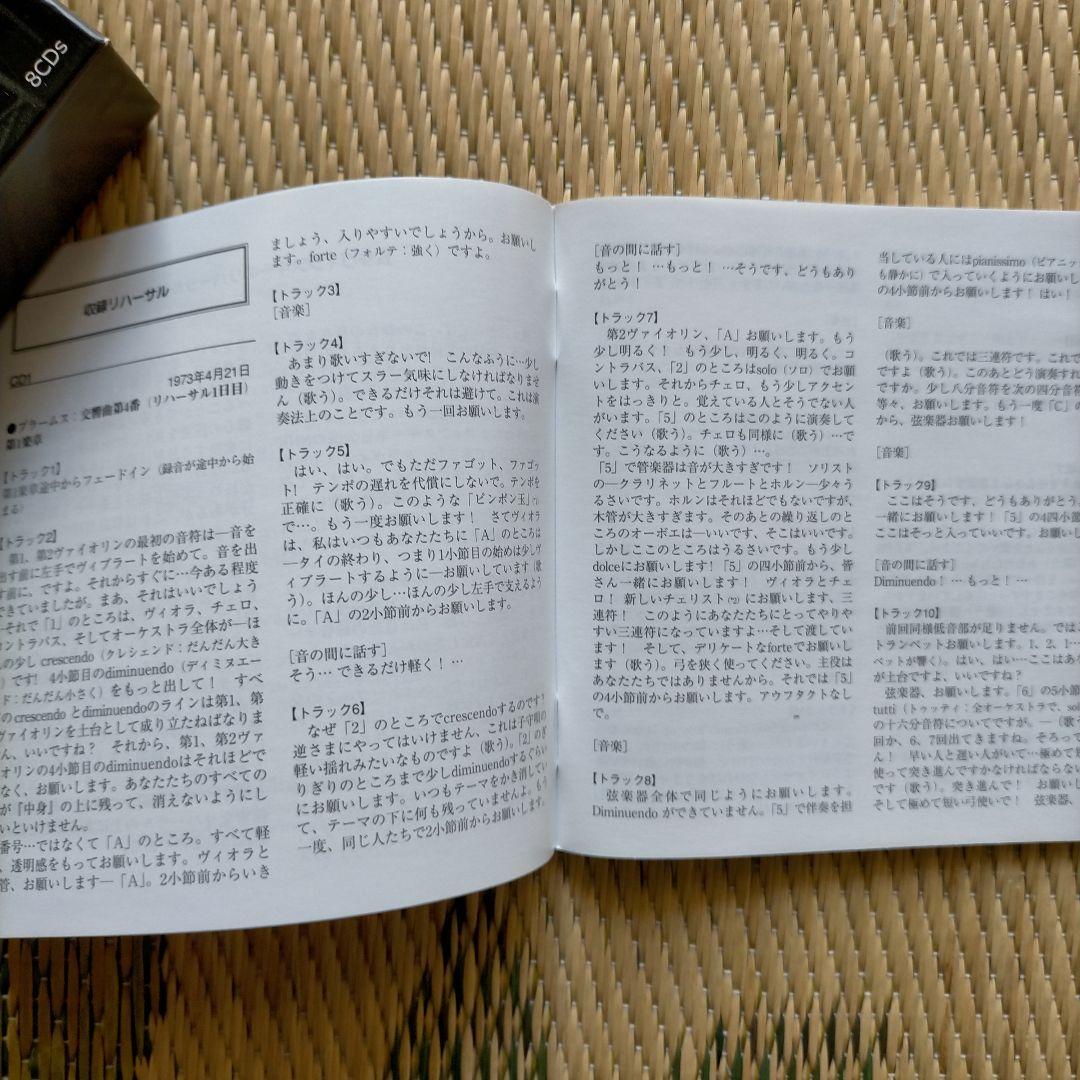 8CDs
収録リハーサル
CD1
1973年4月21日
●ブラームス：交響曲第4番（リハーサル1日目）
第1楽章
【トラック1】
第1楽章途中からフェードイン（録音が途中から始
まる）
【トラック2】
第1、第2ヴァイオリンの最初の音符は―音を
出す前に左手でヴィブラートを始めて。音を出
す前に、ですよ。それからすぐに…今ある程度
できていましたが。まあ、それはいいでしょう
―それで「1」のところは、ヴィオラ、チェロ、
コントラバス、そしてオーケストラ全体が―ほ
んの少し crescendo（クレシェンド：だんだん大き
く）です！ 4小節目のdiminuendo（ディミヌエー
ンド：だんだん小さく）をもっと出して！ すべ
てのcrescendo とdiminuendoのラインは第1、第
ヴァイオリンを土台として成り立たねばなりま
せん、いいですね？ それから、第1、第2ヴァ
イオリンの4小節目のdiminuendoはそれほどで
なく、お願いします。あなたたちのすべての
が「中身」の上に残って、消えないようにし
いといけません。
番号…ではなくて「A」のところ。すべて軽
、透明感をもってお願いします。ヴィオラと
管、お願いします―「A」。2小節前からいき
ましょう、入りやすいでしょうから。お願いし
ます。forte（フォルテ：強く）ですよ。
【トラック3】
［音楽］
【トラック4】
あまり歌いすぎないで！ こんなふうに…少し
動きをつけてスラー気味にしなければなりませ
ん（歌う）。できるだけそれは避けて。これは演
奏法上のことです。もう一回お願いします。
【トラック5】
はい、はい。でもただファゴット、ファゴッ
ト! テンポの遅れを代償にしないで。テンポを
正確に（歌う）。このような「ピンポン玉」(*1)
で…。もう一度お願いします！ さてヴィオラ
は、私はいつもあなたたちに「A」のところは
―タイの終わり、つまり1小節目の始めは少しヴ
ィブラートするように―お願いしています（歌
う）。ほんの少し…ほんの少し左手で支えるよう
に。「A」の2小節前からお願いします。
［音の間に話す］
そう… できるだけ軽く！ …
【トラック6】
なぜ「2」のところでcrescendoするのです？
逆さまにやってはいけません、これは子守唄の
軽い揺れみたいなものですよ（歌う）。「2」のぎ
りぎりのところまで少しdiminuendoするぐらい
にお願いします。いつもテーマをかき消してい
て、テーマの下に何も残っていませんよ。もう
一度、同じ人たちで2小節前からお願いします。
［音の間に話す］
もっと！ …もっと！ …そうです、どうもあり
がとう！
【トラック7】
第2ヴァイオリン、「A」お願いします。もう
少し明るく！ もう少し、明るく、明るく。コ
ントラバス、「2」のところはsolo（ソロ）でお願
いします。それからチェロ、もう少しアクセン
トをはっきりと。覚えている人とそうでない人
がいます。「5」のところはこのように演奏して
ください（歌う）。チェロも同様に（歌う）…で
す。こうなるように（歌う）…。
「5」で管楽器は音が大きすぎです！ ソリスト
の―クラリネットとフルートとホルン―少々う
るさいです。ホルンはそれほどでもないですが、
木管が大きすぎます。そのあとの繰り返しのと
ころのオーボエは―いいです、そこはいいです。
しかしここのところはうるさいです。もう少し
dolceにお願いします！「5」の四小節前から、皆
さん一緒にお願いします！ ヴィオラとチェ
ロ！ 新しいチェリスト(*2) にお願いします、三
連符！ このようにあなたたちにとってやりや
すい三連符になっていますよ…そして渡してい
ます！ そして、デリケートなforteでお願いし
ます（歌う）。弓を狭く使ってください。主役は
あなたたちではありませんから。それでは「5」
の4小節前からお願いします。アウフタクトなし
で。
［音楽］
【トラック8】
弦楽器全体で同じようにお願いします。
Diminuendo ができていません。「5」で伴奏を担
当している人にはpianissimo（ピアニッ
も静かに）で入っていくようにお願いし
の4小節前からお願いします！ はい！
［音楽］
（歌う）。これでは三連符です。これで
ですよ（歌う）。このあとどう演奏すれ
ですか。少し八分音符を次の四分音符
等々、お願いします。もう一度「C」の
から、弦楽器お願いします！
［音楽］
【トラック9】
ここはそうです、どうもありがとう。
一緒にお願いします！「5」の4四小節
ここはそっと入っていいです。お願いし
［音の間に話す］
Diminuendo！ … もっと！ …
【トラック10】
前回同様低音部が足りません。では、
トランペットお願いします。1、2、1…
ペットが響く）。はい、はい…ここはあ
が土台ですよ、いいですね？
弦楽器、お願いします。「6」の5小節
tutti（トゥッティ：全オーケストラで、sol
の十六分音符についてですが。―（歌
回か、6、7回出てきますね。そろって
ん！ 早い人と遅い人がいて…極めて短
使って突き進んですかなければならない
です（歌う）。突き進んで！ お願いし
そして極めて短い弓使いで！ 弦楽器、